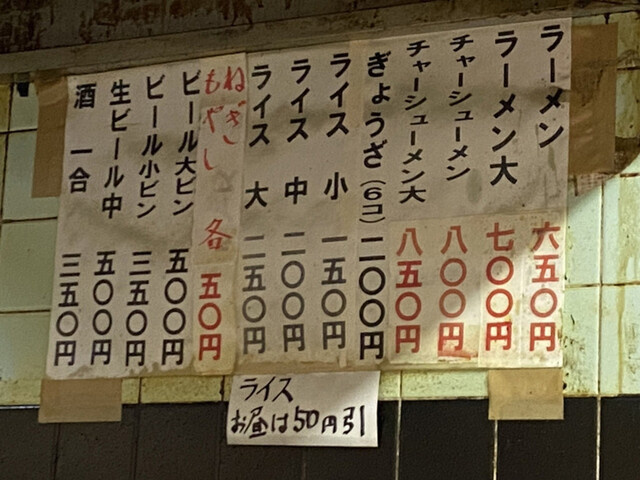 ラーメン 六五〇円
ラーメン大 七〇〇円
チャーシューメン 八〇〇円
チャーシューメン大 八五〇円
ぎょうざ(6コ) 二〇〇円
ライス 小 一五〇円
ライス 中 二〇〇円
ライス 大 二五〇円
ねぎ
もやし 各 五〇円
ビール大ビン 五〇〇円
ビール小ビン 三五〇円
生ビール中 五〇〇円
酒 一合 三五〇円
ライス
お昼は50円引